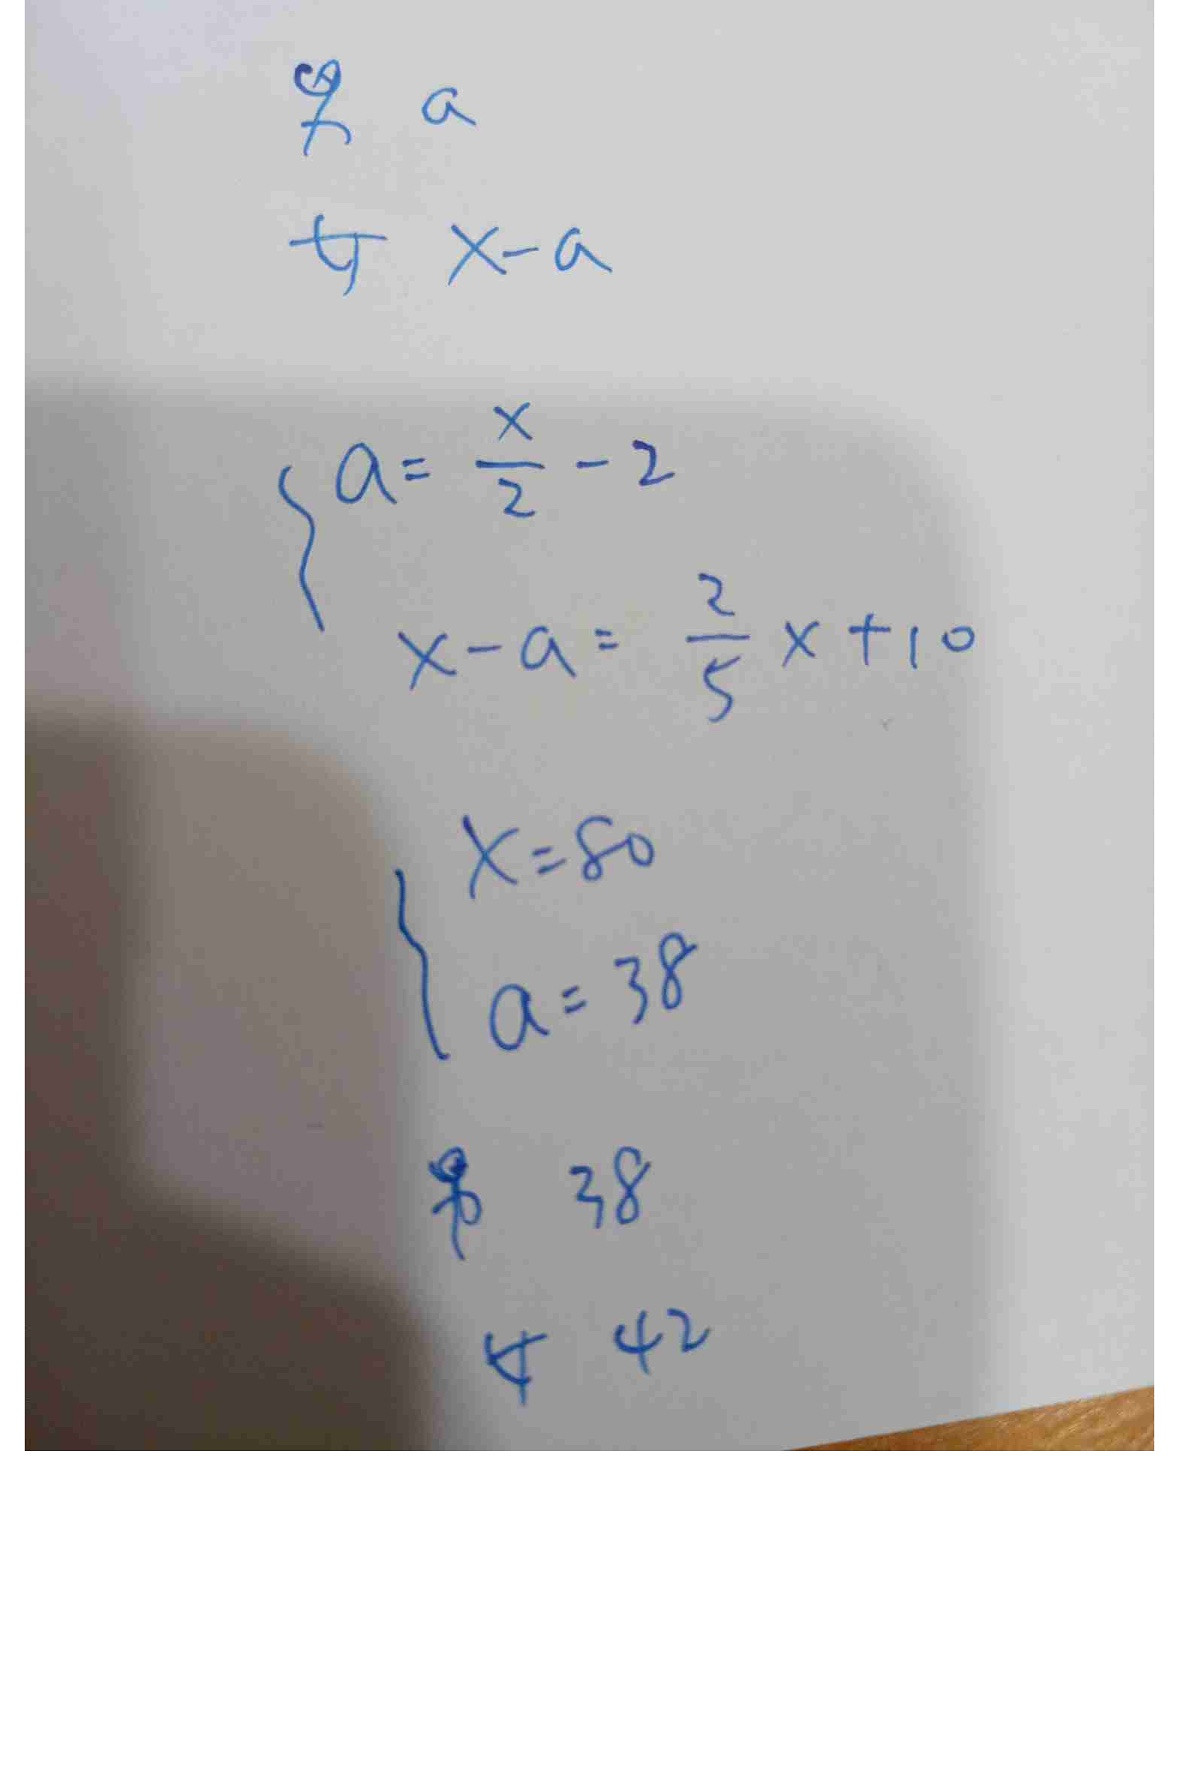 男 a
女 x-a
a = x/2 - 2
x-a = 2/5 x + 10
x = 80
a = 38
男 38
女 42